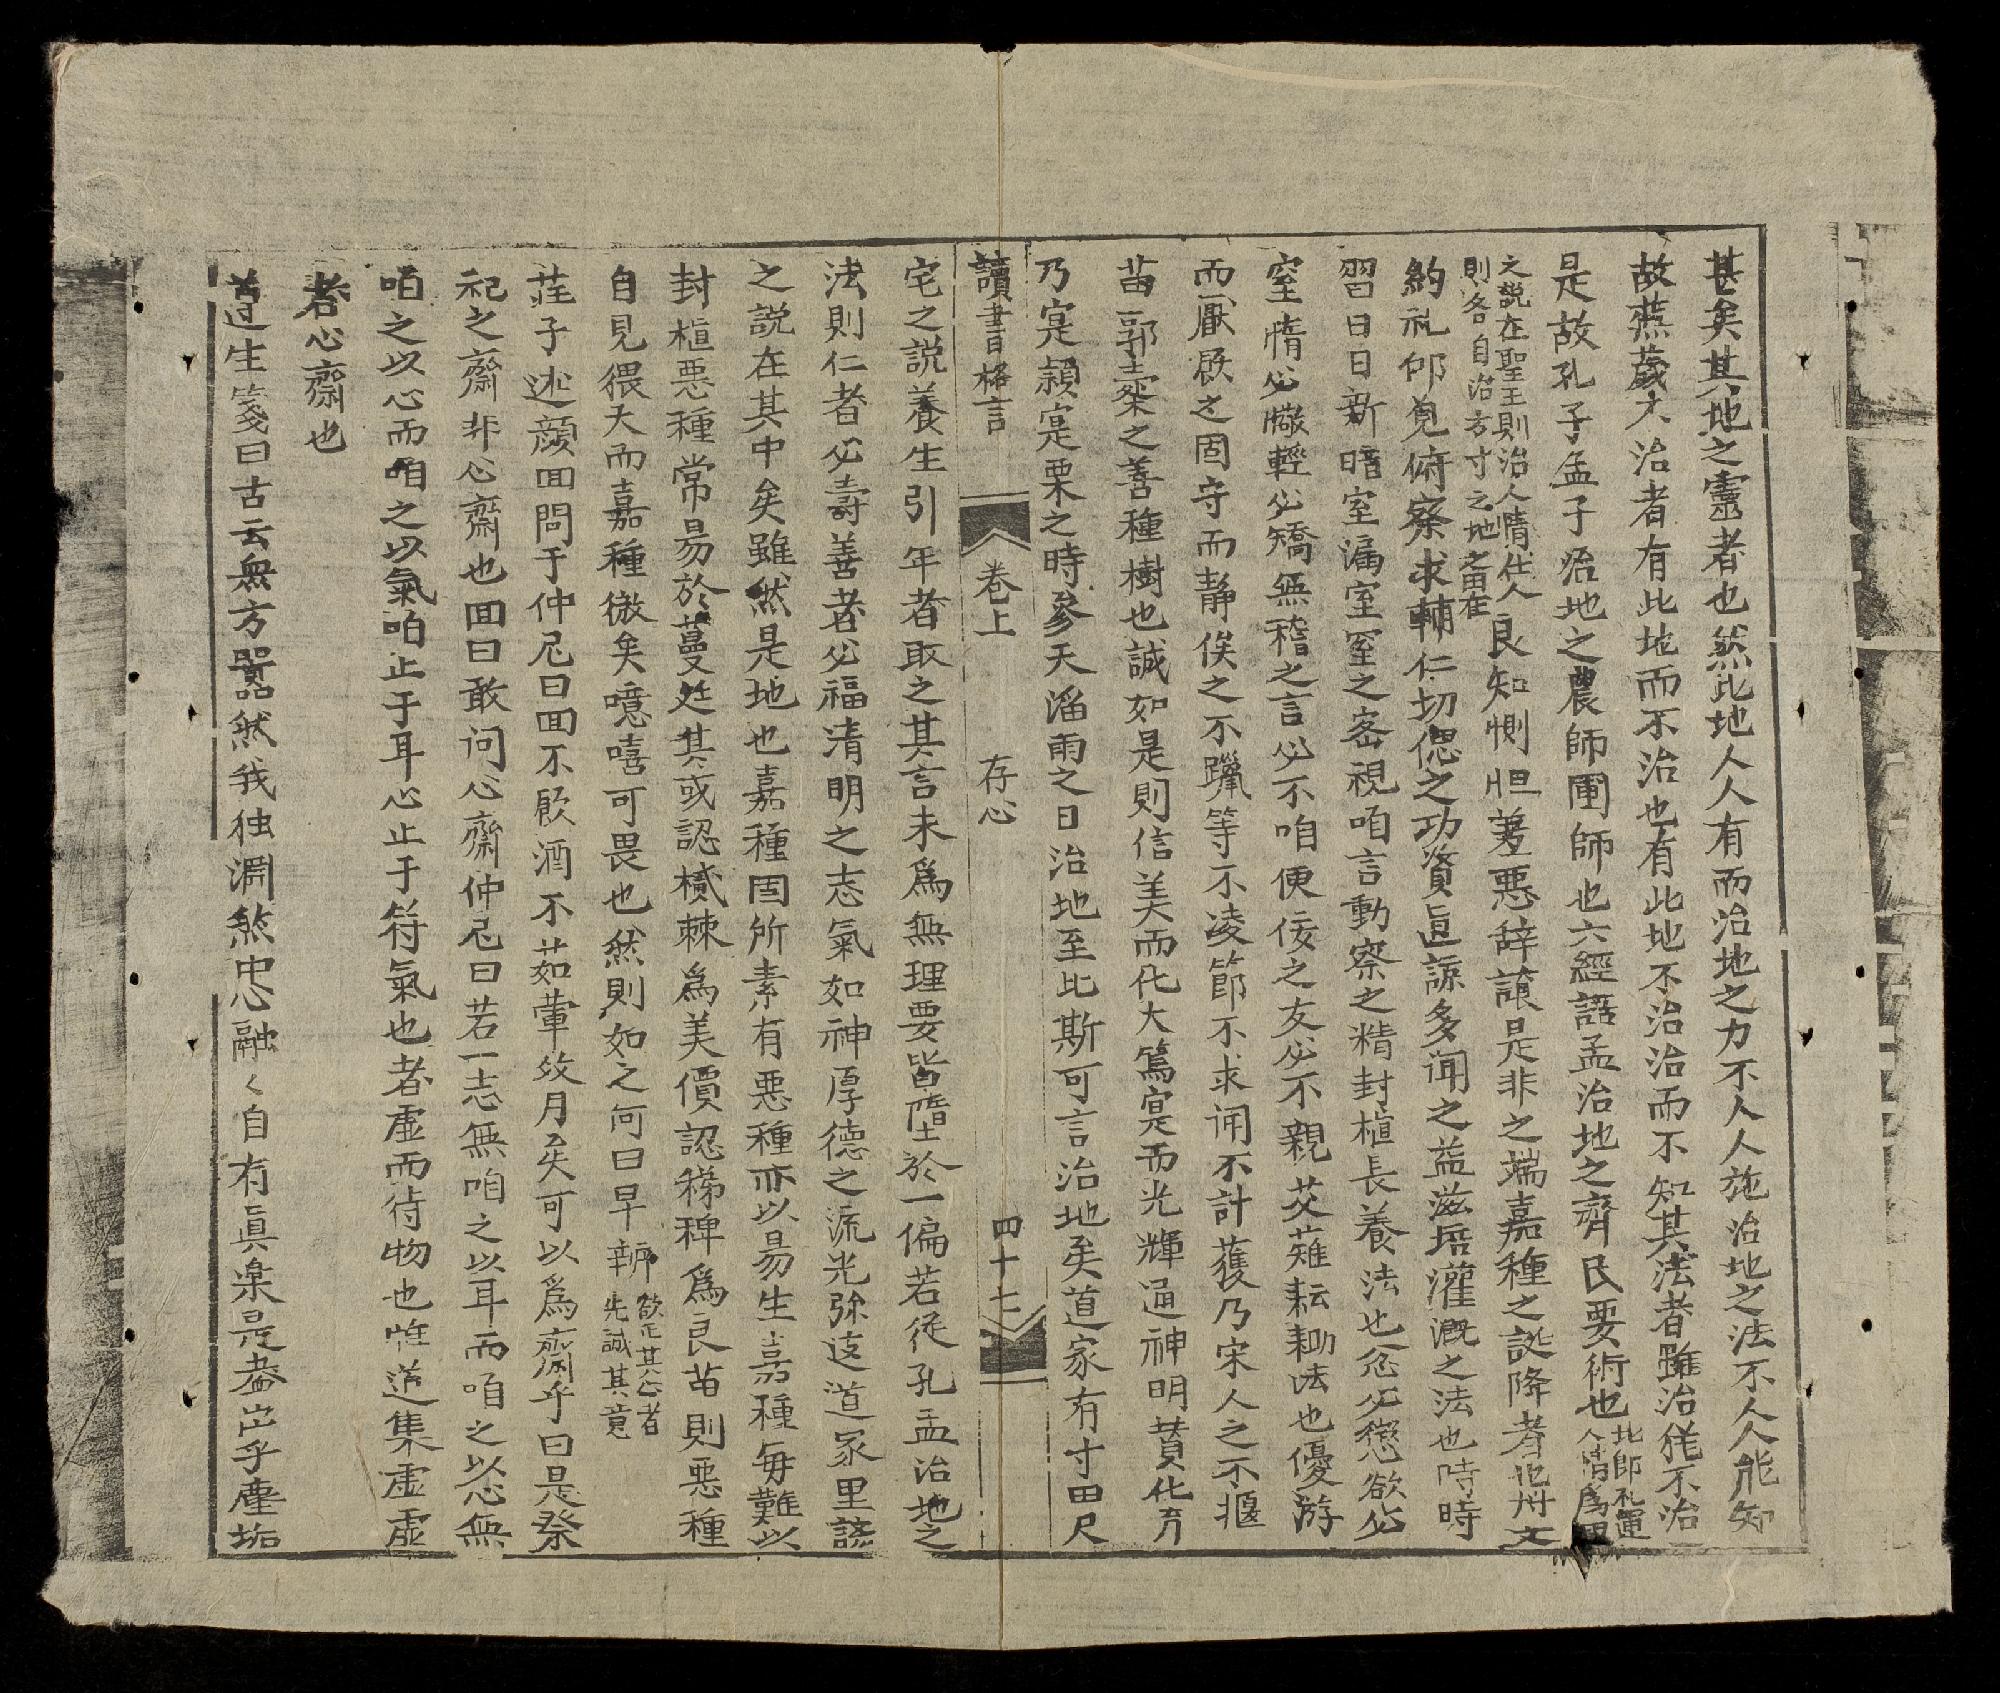 甚矣其地之靈者也然此地人人有而治地之力不人人施治地之法不人人能知
故蕪薉大治者有此地而不治也有此地不治治而不知其法者雖治犹不治
是故孔子孟子治地之農師圃師也六經語孟治地之齊民要術也此即礼運人情為田
之說在聖王則治人情在人則各自治方寸之地良知惻怛羞惡辞讓是非之端嘉種之誕降者也卅文
約礼仰覓俯察求輔仁切偲之功資直諒多闻之益滋培灌溉之法也時時
習日日新暗室漏室窒之宻視咱言動察之精封植長養法也忿必懲欲必
窒惰必儆輕必矯無稽之言必不咱便佞之友必不親芟薙耘耡法也優游
而厭厭之固守而静俟之不躐等不凌節不求闻不計獲乃宋人之不揠
苗郭橐之善種樹也誠如是則信美而化大篤寔而光輝通神明賛化育
乃寔穎寔栗之時參天滛雨之日治地至此斯可言治地矣道家有寸田尺
讀書格言 卷上 存心 四十七
宅之説養生引年者取之其言未爲無理要皆墮於一偏若従孔孟治地之
法則仁者必壽善者必福清明之志氣如神厚德之流光弥远道家里諺
之説在其中矣雖然是地也嘉種固所素有惡種亦以易生嘉種每難以
封植惡種常易於蔓延其或認樲棘爲美價認稊稗爲良苗則惡種
自見猥大而嘉種微矣噫嘻可畏也然則如之何曰早辨欲正其心者先誠其意
莊子述顔回問于仲尼曰回不飲酒不茹葷数月矣可以爲齋乎曰是祭
祀之齋非心齋也回曰敢问心齋仲尼曰若一志無咱之以耳而咱之以心無
咱之以心而咱之以氣咱止于耳心止于符氣也者虛而待物也惟道集虛虛
者心齋也
遵生箋曰古云無方嚣然我独淵然中心融〻自有眞楽是盎出乎塵垢